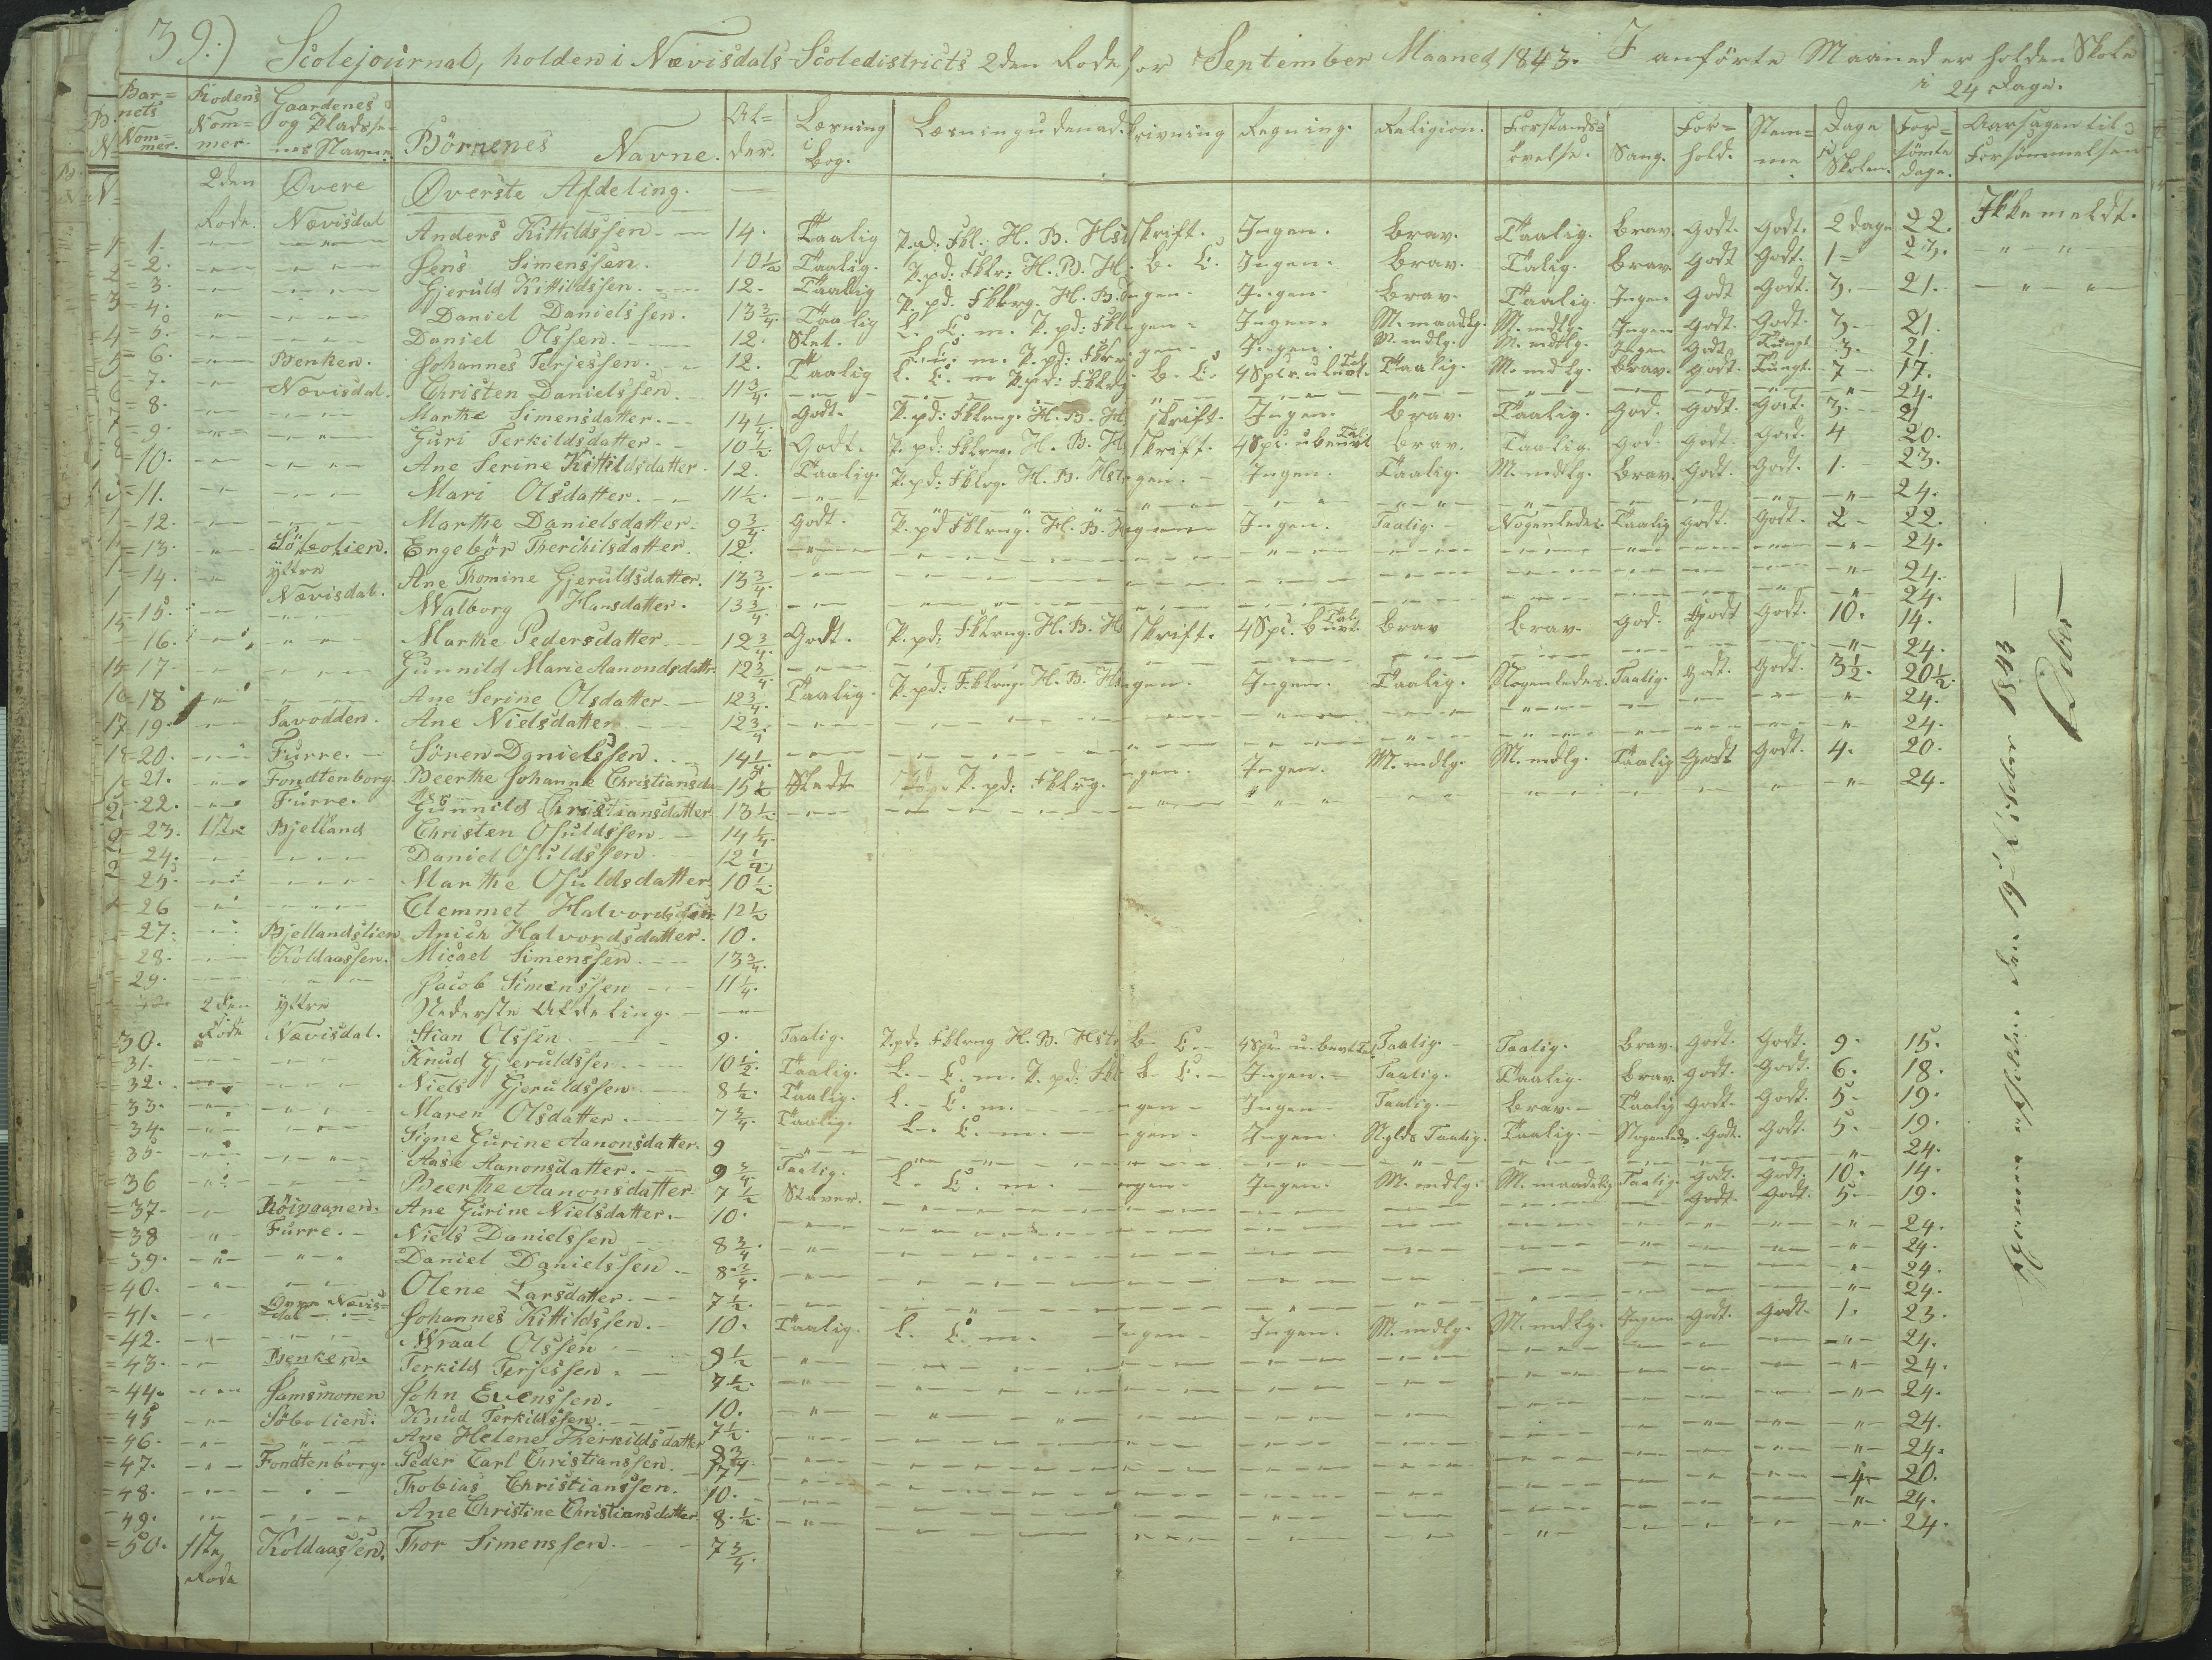 39.) Scolejournal, holden i Nævisdals Scoledistricts 2den Rode for September Maaned 1843. I anförte Maaned er holden Skole
i 24 Dage.
Barnets Nommer. Rodens Nommer. Gaardenes og Pladssenes Navne. Börnenes Navne. Alder. Læsning i Bog. Læsning udenad. Skrivning Regning. Religion. Forstandsövelse. Sang. Forhold. Nemme Dage i Skolen. Forsömte Dage. Aarsagen til Forsömmelsen
2den Rode. Øvere Nævisdal Øverste Afdeling.
1. Anders Kittildssen 14. Taalig P. pd: Fkl: H. B. Hst skrift. Ingen. Brav. Taalig. Brav. Godt. Godt. 2 dage 22. Ikke meldt.
2. Jens Simenssen. 10 1/2 Taalig. P. pd: Fklr: H. B. H. B. C. Ingen. Brav. Talig. Brav. Godt Godt. 1 = 23. - " - " -
3. Gjeruld Kittildssen. 12. Taalig P. pd. Fklrg. H. B. Ingen. Ingen. Brav. Taalig. Ingen Godt Godt. 3. - 21. - " - " -
4. Daniel Danielssen. 13 3/4. Taalig L. C. m. P. pd: Fkl Ingen - Ingen. M. maadlg. M. mdlg. Ingen Godt. Godt. 3 - 21.
5. Daniel Olssen. 12. Slet. L. C. m. P. pd: Fklr Ingen - Ingen. M. mdlg. M. mdlg. Ingen Godt. Tungt 3. 21.
6. Benken. Johannes Terjessen. 12. Taalig L. C. m P. pd: Fklrg B. C. 4 Spec. Taalig. M. mdlg. Brav. Godt. Tungt. 7 - 17.
7. Nævisdal. Christen Danielssen 11 3/4. - " - 24.
8. Marthe Simensdatter. 14 1/4 Godt. P. pd: Fklrng. H. B. H. skrift. Ingen. Brav. Taalig. God. Godt. Godt. 3. 21
9. Guri Terkildsdatter. 10 1/2. Godt. P. pd: Fklrng. H. B. H skrift. 4 Spec. Brav. Taalig. God. Godt. Godt. 4 20.
10. Ane Serine Kittildsdatter. 12. Taalig. P. pd: Fklrg. H. B. Hst Ingen. - Ingen. Taalig. M. mdlg. Brav. Godt. Godt. 1. 23.
11. Mari Olsdatter. 11 1/2. - " - 24.
12. Marthe Danielsdatter. 9 3/4. Godt. P. pd Fklrng. H. B. Ingen Ingen. Taalig. Nogenledes. Taalig Godt. Godt. 2 - 22.
13. Söbolien. Engebör Therchilsdatter. 12. - " - 24.
14. Yttre Nævisdal. Ane Thomine Gjeruldsdatter. 13 3/4. - " - 24.
15. Walborg Hansdatter. 13 3/4. - " - 24.
16. Marthe Pedersdatter 12 3/4. Godt. P. pd: Fklrng. H. B. H skrift. 4 Spec. Brav Brav. God. Godt Godt. 10. 14.
17. Gunnild Marie Aanondsdattr. 12 3/4. - " - 24.
18 Ane Serine Olsdatter. 12 3/4. Taalig. P. pd: Fklrng. H. B. H Ingen. Ingen. Taalig. Nogenledes. Taalig. Godt. Godt. 3 1/2. 20 1/2.
19. Savodden. Ane Nielsdatter 12 3/4. - " - 24.
20. Furre. Sören Danielssen. 14 1/4. - " - 24.
21. Fondtenborg. Beerthe Johanne Christiansda= 15 1/2 Sledt P. pd: Fklrg. Ingen. Ingen. M. mdlg. M. mdlg. Taalig Godt Godt. 4. 20.
22. Furre. Gunnild Christiansdatter 13 1/2. - " - 24.
23. 1ste Bjelland Christen Osuldssen 14 1/4.
24. Daniel Osuldssen 12 1/2.
25. Marthe Osuldsdatter. 10 1/2.
26 Clemmet Halvordssøn. 12 1/2
27. Bjellandslien Anich Halvordsdatter. 10.
28. Koldaassen. Micael Simenssen 13 3/4.
29. Jacob Simenssen 11 1/4.
2den Rode Yttre Nævisdal. Nederste Afdeling.
30. Stian Olssen 9. Taalig. P. pd. Fklrng H. B. Hst. B. C. 4 Spec. Taalig. Taalig. Brav. Godt. Godt. 9. 15.
31. Knud Gjeruldssen 10 1/2. Taalig. L. - C. m. P. pd: Fkl B. C. - Ingen. - Taalig. Taalig. Brav. Godt. Godt. 6. 18.
32. Niels Gjeruldssen 8 1/2. Taalig. L. - C. m. Ingen - Ingen Taalig. - Brav. - Taalig Godt. Godt. 5 - 19.
33. Maren Olsdatter. 7 3/4. Taalig. L. - C. m. Ingen. Ingen. N. gldes Taalig. Taalig. Nogenleds. Godt. Godt. 5. - 19.
34. Signe Gurine Aanonsdatter. 9 - " - 24.
35. Aase Aanonsdatter. 9 3/4 Taalig. L. C. m. Ingen. Ingen. M. mdlg. M. maadelig Taalig. Godt. Godt. 10. 14.
36 Beerthe Aanonsdatter. 7 1/2 Staver. Godt. Godt. 5 - 19.
37. Röinaanen. Ane Gurine Nielsdatter. 10. - " - 24.
38 Furre. Niels Danielssen 8 3/4. - " - 24.
39. Daniel Danielssen 8 3/4. - " - 24.
40. Olene Larsdatter. 7 1/2. - " - 24.
41. Øvre Nævisdal Johannes Kittildssen. 10. Taalig. L. C. m. Ingen - Ingen. M. mdlg. M. mdlg. Ingen Godt. Godt. 1. 23.
42. Wraal Olssen 9 1/2 - " - 24.
43. Benken. Terkild Terjessen 7 1/2. - " - 24.
44. Jamsmonen John Evenssen. 10. - " - 24.
45 Söbolien. Knud Terkildssen. 7 1/2. - " - 24.
46. Ane Helene Therkildsdatter 8 3/4. - " - 24.
47. Fondtenborg. Peder Carl Christianssen. - 4 - 20.
48. Thobias Christianssen. 10. - " - 24.
49. Ane Christine Christiansdatter 8 1/2. - " - 24.
50. 1ste Rode Koldaassen. Thor Simenssen. 7 3/4.
October 1843